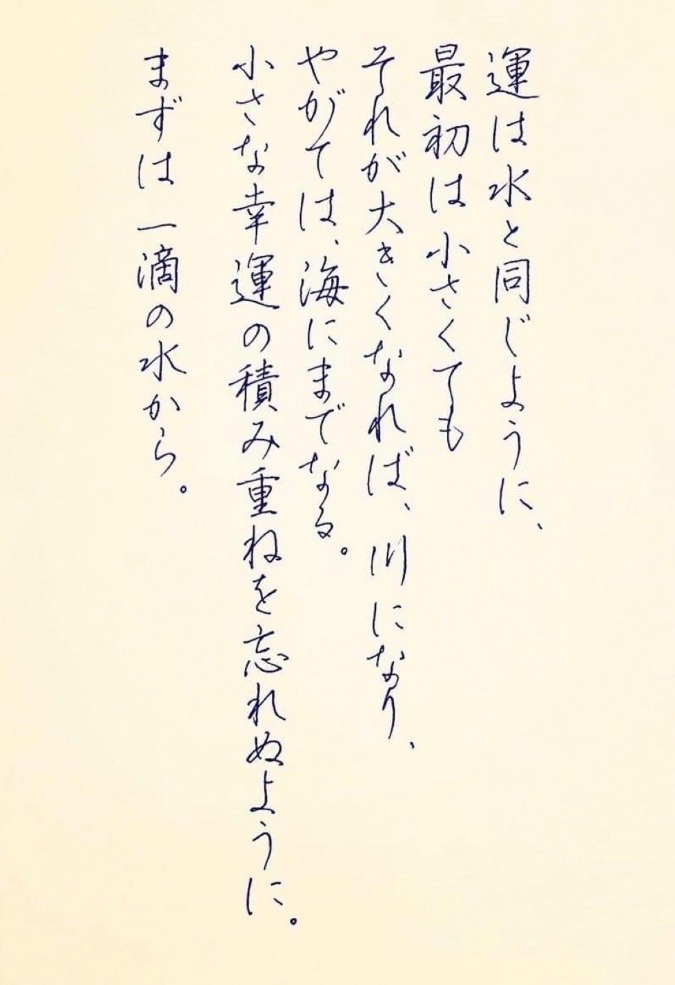 運は水と同じように、
最初は小さくても
それが大きくなれば、川になり、
やがては、海にまでなる。
小さな幸運の積み重ねを忘れぬように。
まずは一滴の水から。